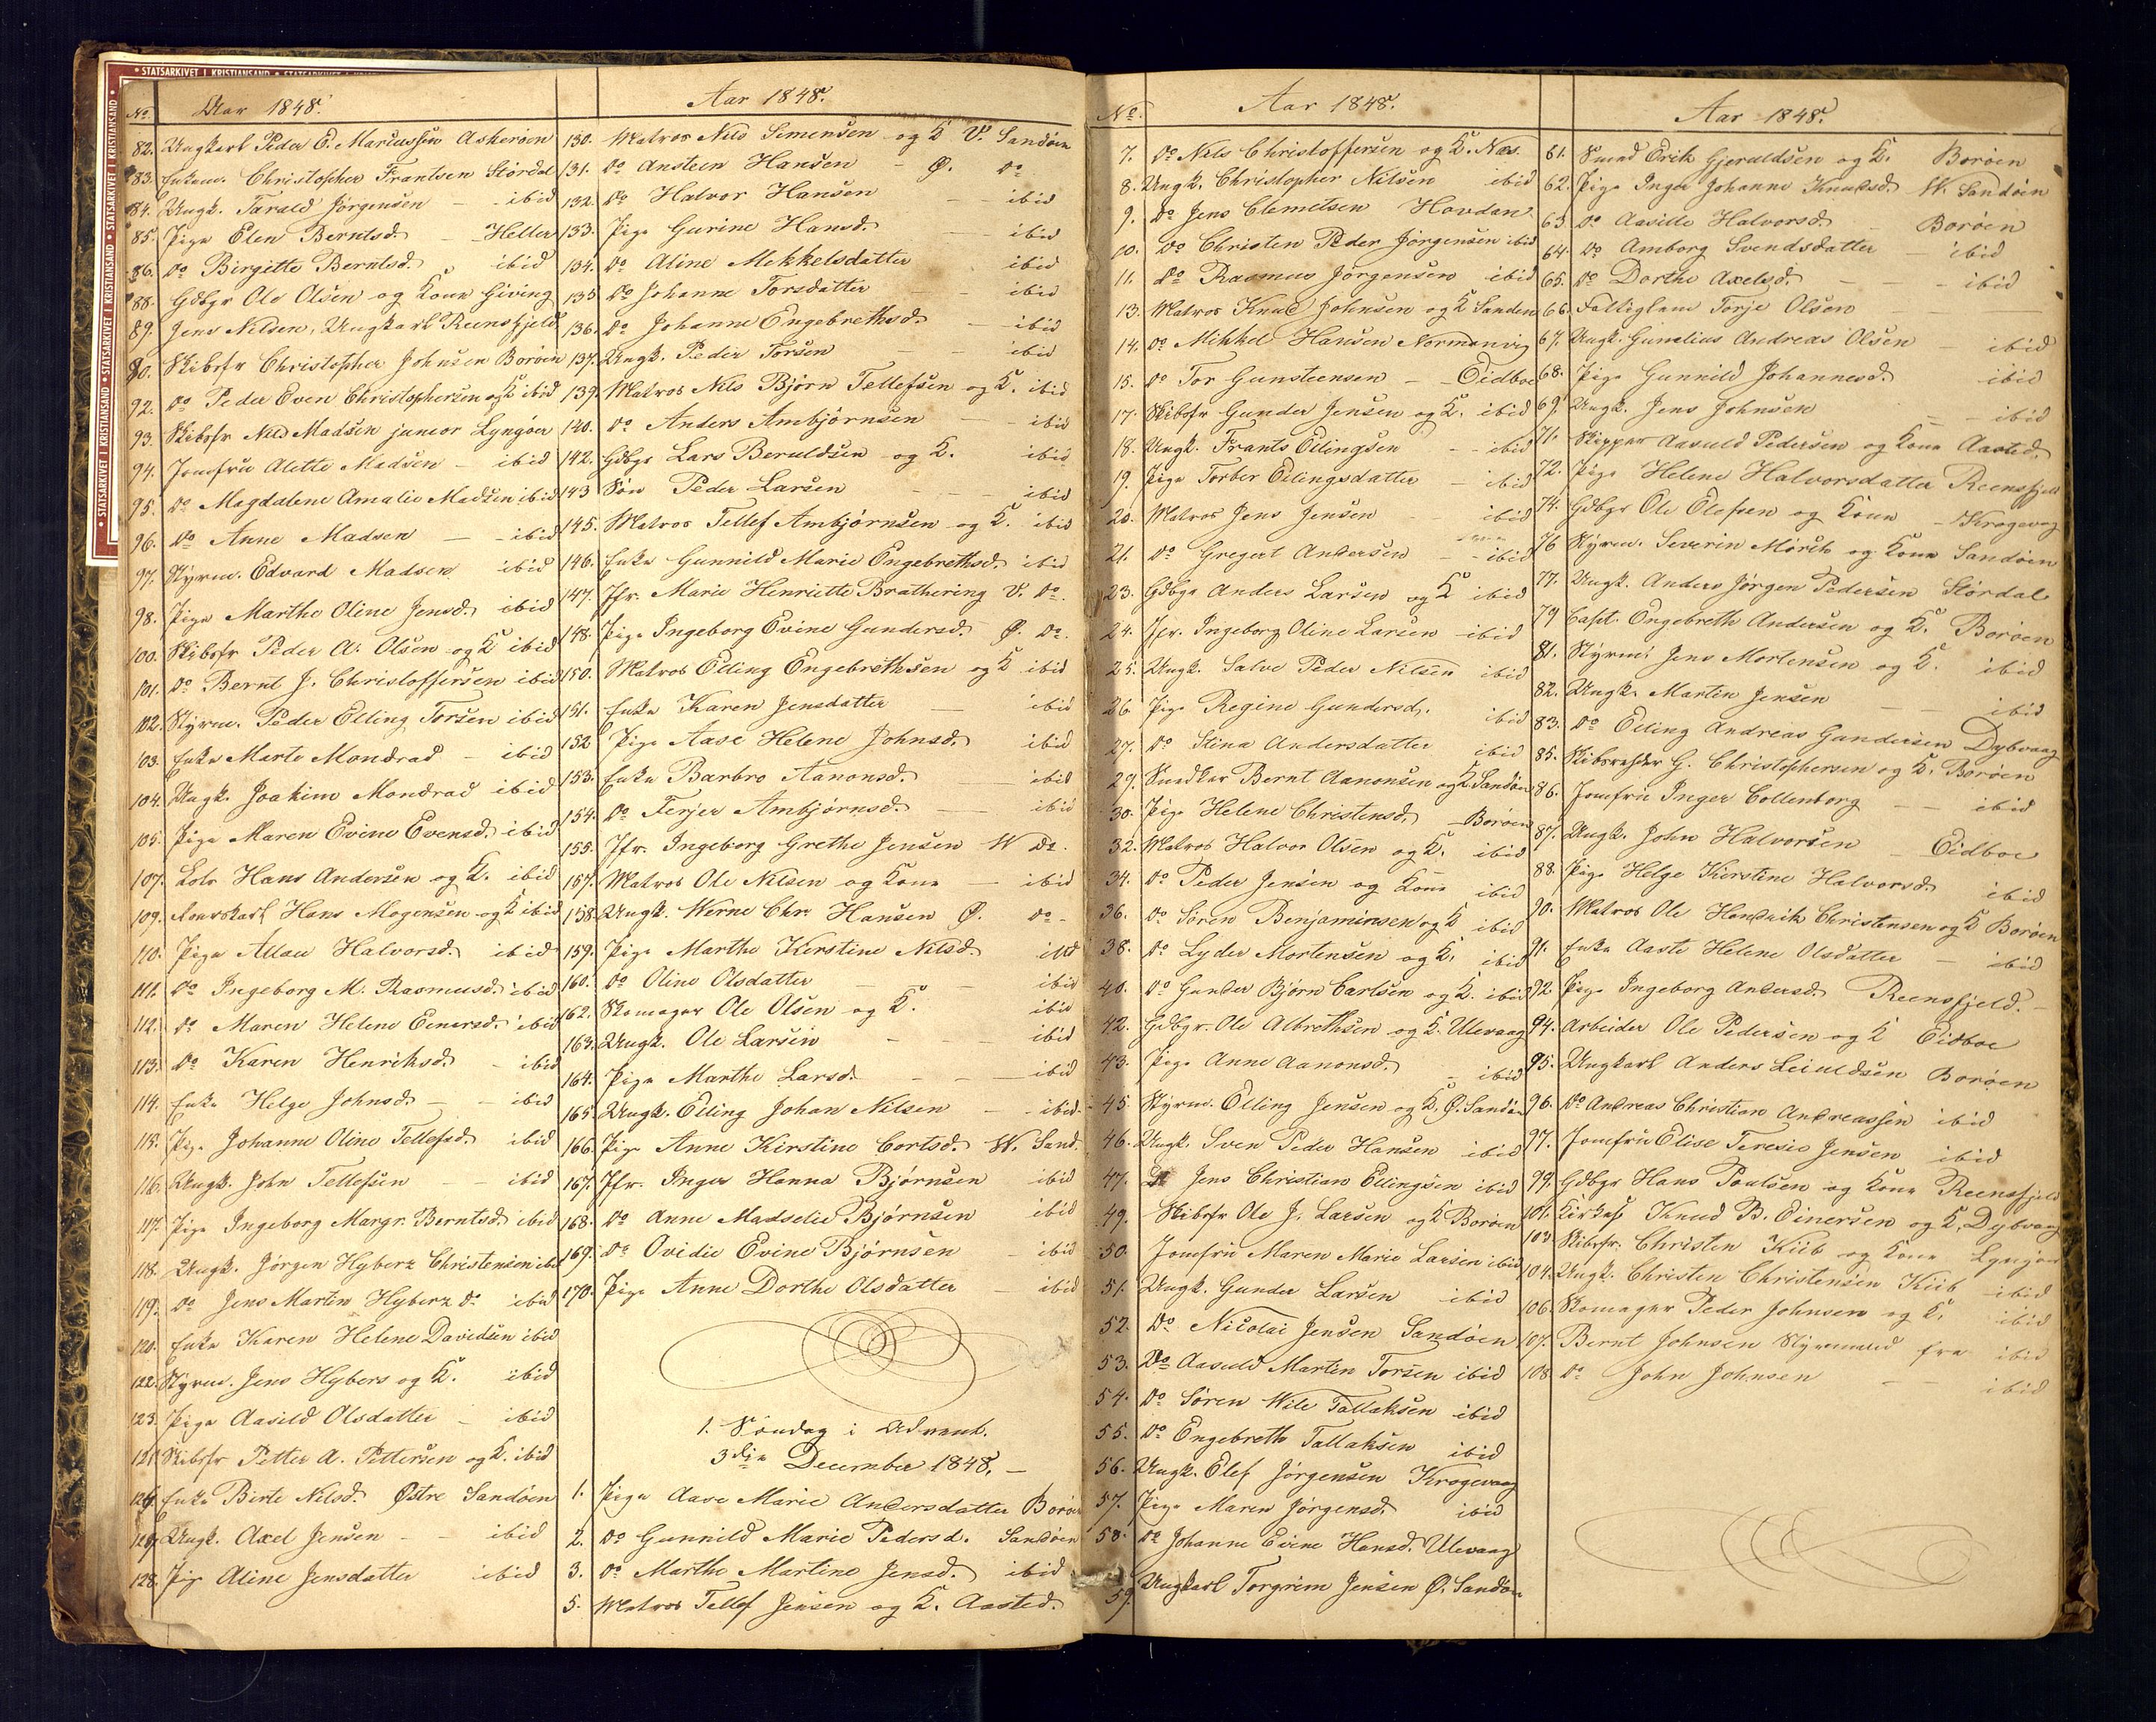 • STATSARKIVET I KRISTIANSAND • STATSARKIVET I KRISTIANSAND •
No. Aar 1848.
82. Ungkarl Peder E. Marcussen Askerøen
83. Enkem. Christopher Frantsen Størdal
84. Ungk. Tarald Jörgensen — ibid
85. Pige Elen Berntsd. — Heller
86. do Birgitte Berntsd. ibid
88. Gdbgr Ole Olsen og Kone Giving
89. Jens Nilsen, Ungkarl Reensfjeld
80. Skibsfr Christopher Johnsen Borøen
92. do Peder Even Christophersen og K ibid
93. Skibsfr Nils Madsen junior Lyngøer
94. Jomfru Alette Madsen — ibid
95. do Magdalene Amalie Madsen ibid
96. do Anne Madsen — ibid
97. Styrm. Edvard Madsen ibid
98. Pige Marthe Oline Jensd. ibid
100. Skibsfr Peder A. Olsen og K ibid
101. do Bernt J. Christoffersen ibid
102. Styrm. Peder Elling Torsen ibid
103. Enke Marte Mondrad — ibid
104. Ungk. Joakim Mondrad ibid
105. Pige Maren Evine Evensd. ibid
107. Lods Hans Andersen og K. ibid
109. Hans Mogensen og K ibid
110. Pige Allau Halvorsd. ibid
111. do Ingeborg M. Rasmusd. ibid
112. do Maren Helene Einersd. ibid
113. do Karen Henriksd. — ibid
114. Enke Helge Johnsd. — ibid
115. Pige Johanne Oline Tellefsd. ibid
116. Ungk. John Tellefsen — ibid
117. Pige Ingeborg Margr. Berntsd. ibid
118. Ungk. Jörgen Hyberz Christensen ibid
119. do Jens Martin Hyberz do ibid
120. Enke Karen Helene Davidsen ibid
122. Styrm. Jens Hybers og K. ibid
123. Pige Aasild Olsdatter — ibid
Skibsfr Petter A. Pettersen og K. ibid
126. Enke Birte Nilsd. Østre Sandøen
127. Ungk. Axel Jensen — ibid
128. Pige Aline Jensdatter ibid
Aar 1848.
130. Matros Nils Simensen og K V. Sandøen
131. do Ansteen Hansen — Ø. do
132. do Halvor Hansen — ibid
133. Pige Gurine Hansd. — ibid
134. do Aline Mekkelsdatter ibid
135 do Johanne Torsdatter — ibid
136. do Johanne Engebrethsd. — ibid
137. Ungk. Peder Torsen — ibid
139. Matros Nils Bjørn Tellefsen og K. ibid
140. do Anders Ambjørnsen — ibid
142. Gdbgr Lars Beruldsen og K. ibid
143 Søn Peder Larsen — ibid
145. Matros Tellef Ambjørnsen og K. ibid
146. Enke Gunnild Marie Engebrethsd. ibid
147. Jfr. Marie Henriette Brathering V. do.
148. Pige Ingeborg Evine Gundersd. Ø. do.
150. Matros Elling Engebrethsen og K ibid
151. Enke Karen Jensdatter — ibid
152 Pige Aase Helene Johnsd. ibid
153. Enke Barbro Aanonsd. ibid
154. do Terjer Ambjørnsd. — ibid
155. Jfr. Ingeborg Grethe Jensen W do.
157. Matros Ole Nilsen og Kone — ibid
158. Ungk. Werne Chr. Hansen Ø. do -
159. Pige Marthe Kirstine Nilsd. ibid
160. do Oline Olsdatter — ibid
162. Skomager Ole Olsen og K. ibid
163. Ungk. Ole Larsen — ibid
164. Pige Marthe Larsd. — ibid
165. Ungk. Elling Johan Nilsen — ibid.
166. Pige Anne Kirstine Cortsd. W. Sand.
167. Jfr. Inger Hanna Bjørnsen ibid
168. do Anne Madselie Bjørnsen ibid
169. do Ovidie Evine Bjørnsen — ibid
170. Pige Anne Dorthe Olsdatter — ibid
1. Søndag i Advent.
3die December 1848. —
1. Pige Aase Marie Andersdatter Borøen
2. do Gunnild Marie Pedersd. Sandøen
3. do Marthe Martine Jensd. ibid
5. Matros Tellef Jensen og K. Aasted.
No. Aar 1848.
7. do Nils Christoffersen og K. Næs.
8. Ungk. Christopher Nilsen ibid
9. do Jens Clemetsen Hovdan
10. do Christen Peder Jörgensen ibid
11. do Rasmus Jörgensen ibid
13. Matros Knud Johnsen og K Sanden
14. do Mikkel Hansen Normanvig
15. do Tor Gunsteensen — Eidboe
17. Skibsfr Gunder Jensen og K. ibid
18. Ungk. Frants Ellingsen — ibid
19. Pige Torber Ellingsdatter — ibid
20. Matros Jens Jensen ibid
21. do Gregert Andersen — ibid
23. Gdbgr Anders Larsen og K ibid
24. Jfr. Ingeborg Oline Larsen ibid
25. Ungk. Salve Peder Nilsen ibid
26 Pige Regine Gundersd. ibid
27. do Stina Andersdatter ibid
29. Snedker Bernt Aanonsen og K Sandøen
30. Pige Helene Christensd. Borøen
32. Matros Halvor Olsen og K. ibid
34. do Peder Jensen og Kone ibid
36. do Søren Benjaminsen og K ibid
38. do Lyder Mortensen og K. ibid
40. do Gunder Bjørn Carlsen og K. ibid
42. Gdbgr. Ole Albrethsen og K. Ulevaag
43. Pige Anne Aanonsd. — ibid
45 Styrm. Elling Jensen og K. Ø. Sandøen
46. Ungk. Sven Peder Hansen ibid
47. Jens Christian Ellingsen ibid
49. Skibsfr Ole J. Larsen og K Borøen
50. Jomfru Maren Marie Larsen ibid
51. Ungk. Gunder Larsen ibid
52. do Nicolai Jensen Sandøen
53. do Aasuld Martin Torsen ibid
54. do Søren Wile Tallaksen ibid
55. do Engebreth Tallaksen ibid
56. Ungk. Elef Jörgensen Krogevaag
57. Pige Maren Jörgensd. ibid
58. do Johanne Evine Hansd. Ulevaag
59. Ungkarl Torgrim Jensen Ø. Sandøen
Aar 1848.
61. Smed Erik Gjeruldsen og K. Borøen
62. Pige Inger Johanne Knudsd. W. Sandøen
63 do Aasille Halvorsd. — Borøen
64. do Amborg Svendsdatter — ibid
65. do Dorthe Axelsd. — ibid
66. Fattiglem Torje Olsen —
67. Ungk. Gunelius Andreas Olsen ibid
68. Pige Gunnild Johannesd. ibid
69. Ungk. Jens Johnsen — ibid
71. Skipper Aasuld Pedersen og Kone Aasted.
72. Pige Helene Halvorsdatter Reensfjeld
74. Gdbgr Ole Olefsen og Kone — Krogevag
76 Styrm. Severin Mörch og Kone Sandøen
77. Ungk. Anders Jörgen Pedersen Stördal.
79 Capt. Engebreth Andersen og K. Borøen
81. Styrm. Jens Mortensen og K. ibid
82. Ungk. Martin Jensen — ibid
83. do Elling Andreas Gundersen Dybvaag
85. Skibsrehder G. Christophersen og K. Borøen
86. Jomfru Inger Collenborg — ibid
87. Ungk. John Halvorsen — Eidboe
88. Pige Helge Kirstine Halvorsd. ibid
90. Matros Ole Hendrik Christensen og K Borøen
91. Enke Aaste Helene Olsdatter — ibid
92. Pige Ingeborg Andersd. Reensfjeld. —
94. Arbeider Ole Pedersen og K Eidboe
95. Ungkarl Anders Leiuldsen Borøen
96. do Andreas Christian Andreassen ibid
97. Jomfru Elise Teresie Jensen ibid
99. Gdbgr Hans Poulsen og Kone Reensfjeld
101. Knud B. Einersen og K. Dybvaag
103. Skibsfr. Christen Kiib og Kone Lyngør
104. Ungk. Christen Christensen Kiib — ibid
106. Skomager Peder Johnsen og K. ibid
107. Bernt Johnsen Styrmand fra ibid
108 do John Johnsen — ibid